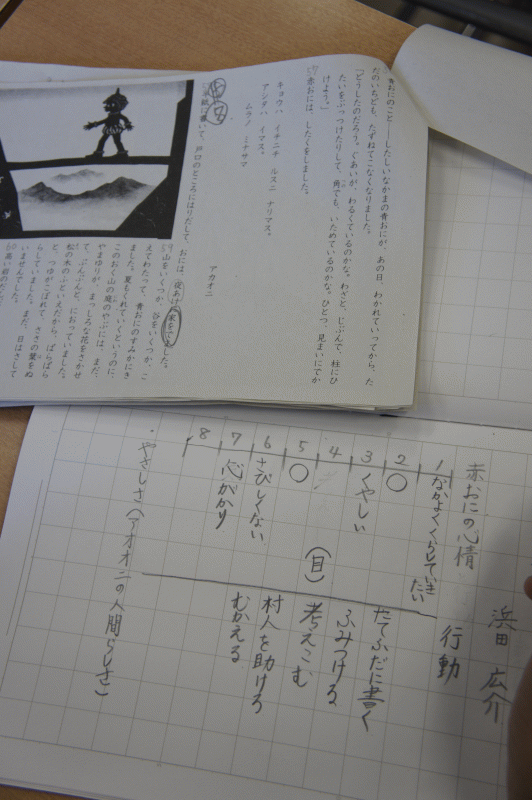 青おにのこと――したしいなかまの青おにが、あの日、わかれていってから、た
だのいちども、たずねてこなくなりました。
「どうしたのだろう。ぐあいが、わるくているのかな。わざと、じぶんで、柱にひ
たいをぶっつけたりして、角でも、いためているのかな。ひとつ、見まいにでか
けよう。」
赤おには、したくをしました。
キョウハ　イチニチ　ルスニ　ナリマス。
アシタハ　イマス。
ムラノ　ミナサマ
アカオニ
半紙に書いて、戸口のところにはりだして、おには、夜あけに、家をでました。
山をいくつか、谷をいくつか、こ
えてわたって、青おにのすみかにき
ました。夏もくれていくというのに、
このおく山の庭のやぶには、まだ、
やまゆりが、まっしろな花をさかせ
て、ぷんぷんと、においっていました。
松の木のふといえだから、ぱらぱら
と、つゆがこぼれて、ささの葉をぬ
らしていました。まだ、日はさして
いませんでした。
高い岩のだ
浜田　広介
赤おにの心情
行動
1　なかよくくらしていきたい
たてふだに書く
2　○
ふみつける
3　くやしい
考えこむ
4
村人を助けろ
5　○　（目）
むかえる
6　さびしくない
7　心がかり
8
・やさしさ（アオオニの人間らしさ）